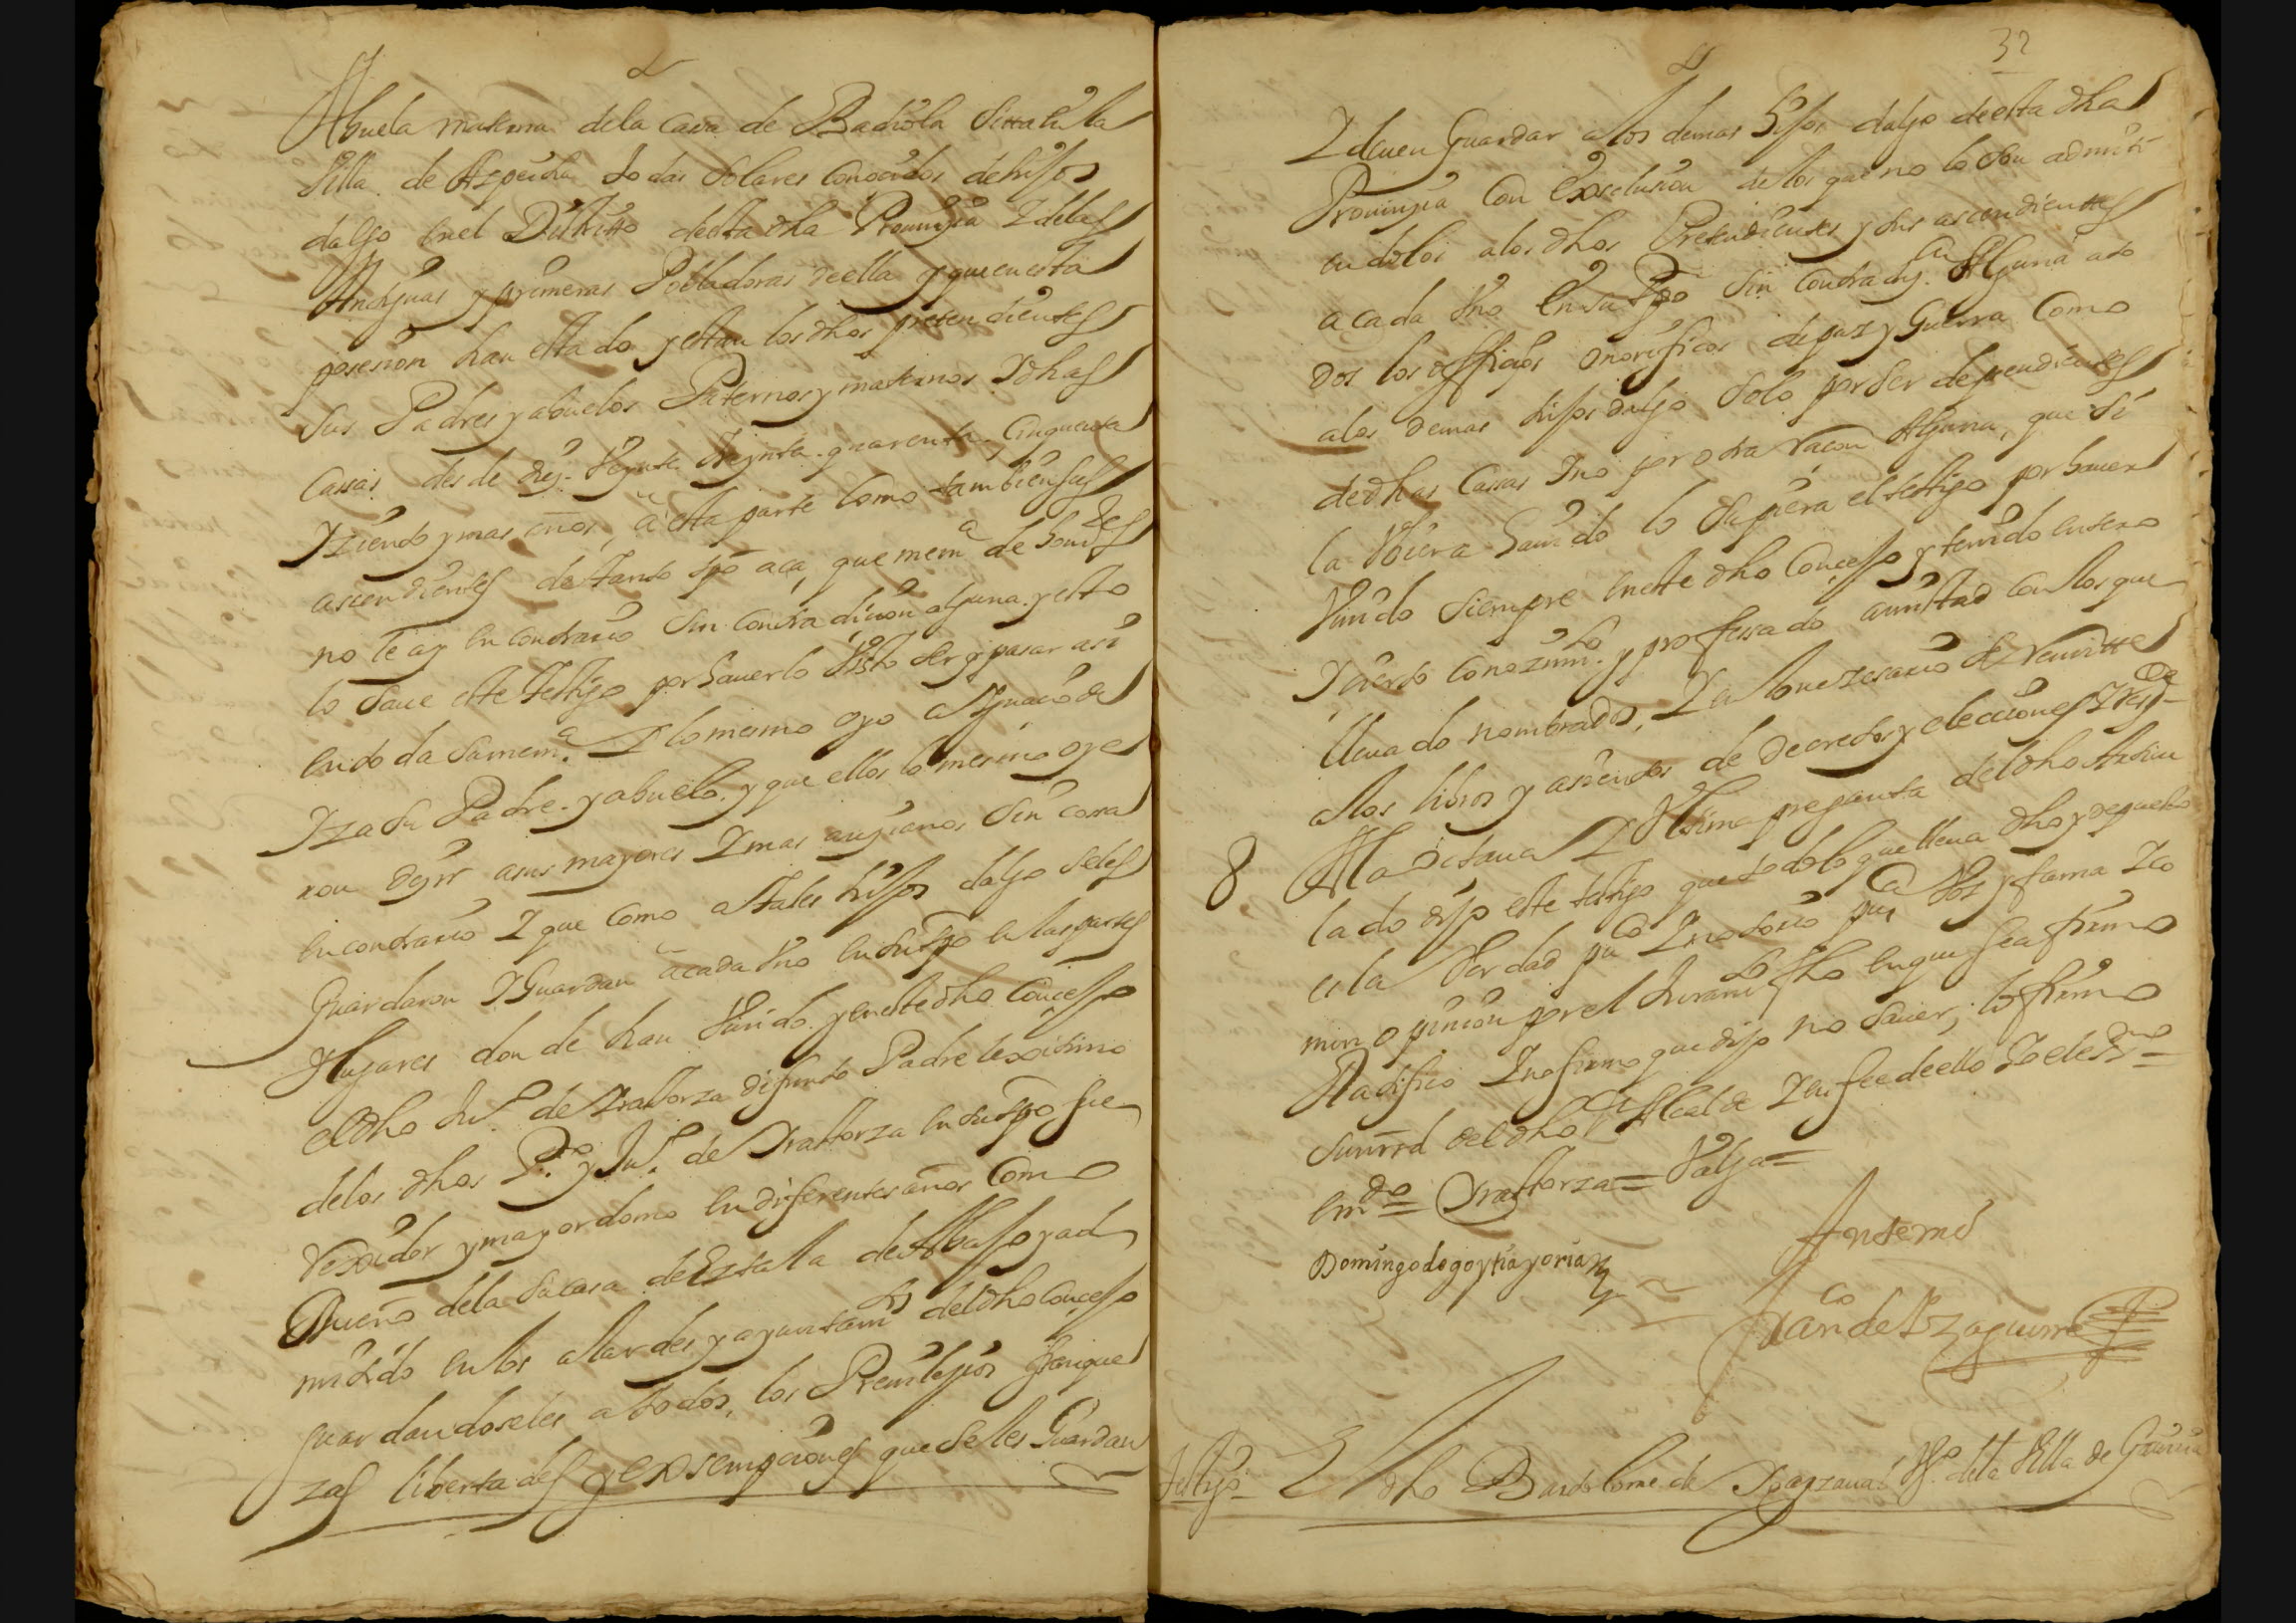 Abuela materna dela Casa de Badiola Sitta en la
Villa de Azpeitia todas Solares Conocidos dehijos
dalgo en el Distritto desta dha Prouinçia Y delas
Antiguas y primeras Pobladoras de ella y que en esta
posesion han estado y estan los dhos pretendientes
Sus Padres y abuelos Paternos y maternos Y dhas
Cassas desde diez Veynte treynta quarenta Cinquenta
Y ziento y mas años a esta parte Como tambien sus
asçendientes de tanto tpo aca que memª de hombres
no le ay en contrario Sin contradicion alguna y esto
lo Saue este testigo por hauerlo Visto Ser y pasar assi
en toda Su memª Y lo mesmo oyo a Ygnacio de
Yza Su Padre y abuelo y que ellos lo mesmo oye
ron dezir a sus mayores Y mas ançianos Sin cossa
en contrario Y que Como a tales hijos dalgo Seles
Guardaron Y Guardan a cada Vno en Su tpo en las partes
Y lugares donde han Viuido y en este dho Conçejo
el dho Juº de Yrastorza difunto Padre lexitimo
delos dhos Pº y Juº de Yrastorza en Su tpo fue
rexidor y mayordomo en diferentes años Como
Dueño dela Su casa de Eztala de Abajo y ad
mitido en los alardes y ayuntamtos del dho Conçejo
guardandoseles a todos los Preuilejios franque
zas libertades y exsempçiones que Se les Guardan
32
Y deuen Guardar a los demas hijos dalgo de esta dha
Prouinçia Con Exsclusion delos que no lo Son admiti
endolos alos dhos Pretendientes y Sus ascendientes
a cada Vno En Su tpo Sin Contradizon Alguna a to
dos los offiçios onorificos de paz y Guerra Como
alos demas hijos dalgo Solo por Ser desçendientes
de dhas Cassas Y no por otra racon Alguna, que Si
la Vbiera hauido lo Supiera el testigo por hauer
Viuido Siempre en este dho Conçejo y tenido entero
Y çierto Conozimto y professado amistad Con los que
lleua do nombrados, Y en lo nezesario Se remitte
alos libros y asientos de decretos y elecciones Y respde
8 A la octaua Y Vltima pregunta del dho Articu
lado dijo este testigo que todo lo que lleua dho y depuesto
es la Verdad puco Y notorio puca Voz y fama Y co
mun opinion por el Juramto fho en que Se afirmo
Ratifico Y no firmo que dijo no Sauer, lo firmo
Su mrd del dho Sr Alcalde Y en fee de ello Yo el esno =
Enmdo = Yrastorza = Valga =
Domingo de goytia y oria
Ante mi
Franco de Yzaguirre
Testigo El dho Bartolome de Vº de la Villa de